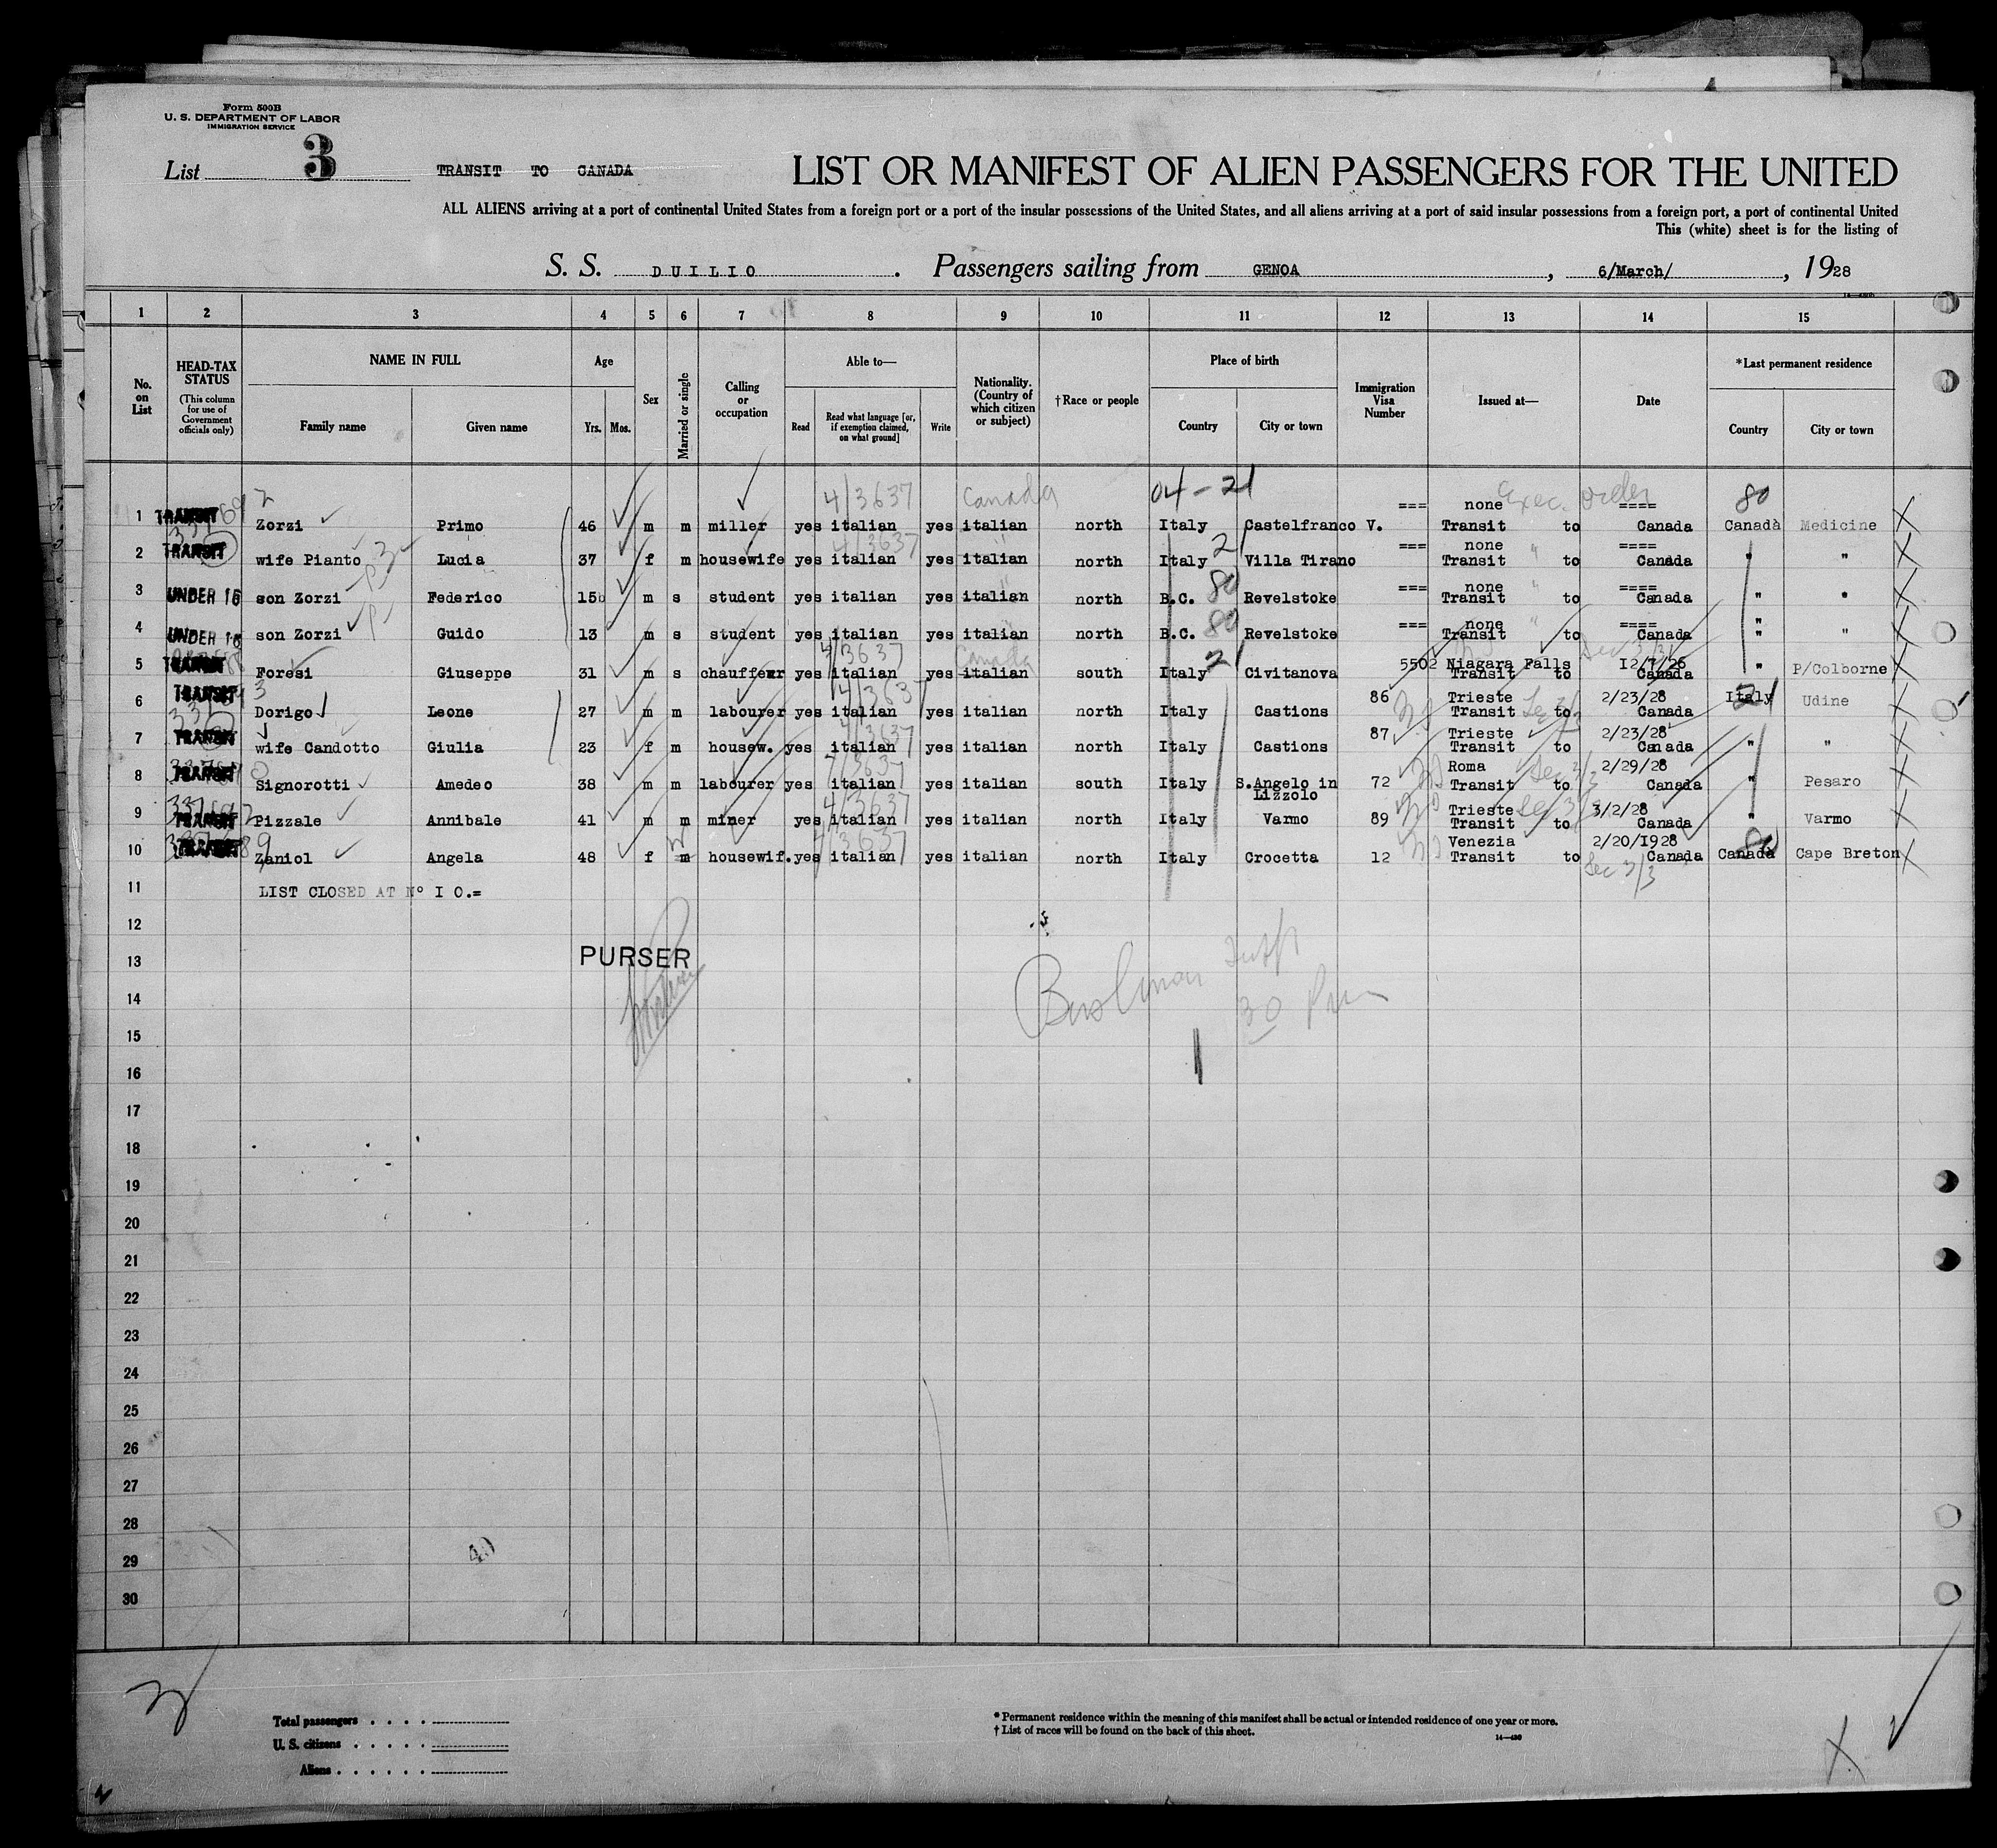 Form 500B
U. S. DEPARTMENT OF LABOR
IMMIGRATION SERVICE
List 3 TRANSIT TO CANADA LIST OR MANIFEST OF ALIEN PASSENGERS FOR THE UNITED
ALL ALIENS arriving at a port of continental United States from a foreign port or a port of the insular possessions of the United States, and all aliens arriving at a port of said insular possessions from a foreign port, a port of continental United
This (white) sheet is for the listing of
S. S. DUILIO . Passengers sailing from GENOA , 6/March/ , 1928
1 2 3 4 5 6 7 8 9 10 11 12 13 14 15
No. on List
HEAD-TAX STATUS (This column for use of Government officials only)
NAME IN FULL Family name Given name
Age Yrs. Mos.
Sex
Married or single
Calling or occupation
Able to— Read Read what language [or, if exemption claimed, on what ground] Write
Nationality. (Country of which citizen or subject)
†Race or people
Place of birth Country City or town
Immigration Visa Number
Issued at—
Date
*Last permanent residence Country City or town
4/3637 Canada 04-21 Exec. order 80
1 TRANSIT Zorzi Primo 46 m m miller yes italian yes italian north Italy Castelfranco V. === none Transit to ==== Canada Canada Medicine
2 TRANSIT wife Pianto Lucia 37 f m housewife yes italian 4/3637 yes italian north Italy 21 Villa Tirano === none " Transit to ==== Canada " "
3 UNDER 16 son Zorzi Federico 15 m s student yes italian yes italian north B.C. 80 Revelstoke === none " Transit to ==== Canada " "
4 UNDER 16 son Zorzi Guido 13 m s student yes italian yes italian north B.C. 80 Revelstoke === none " Transit to ==== Canada " "
5 TRANSIT Foresi Giuseppe 31 m s chauffeur yes italian 4/3637 yes italian Canada south Italy 21 Civitanova 5502 Niagara Falls Transit to I2/7/26 Canada " P/Colborne
6 TRANSIT Dorigo Leone 27 m m labourer yes italian 4/3637 yes italian north Italy Castions 86 Trieste Transit to 2/23/28 Canada Italy 21 Udine
7 TRANSIT wife Candotto Giulia 23 f m housew. yes italian 4/3637 yes italian north Italy Castions 87 Trieste Transit to 2/23/28 Canada " "
8 TRANSIT Signorotti Amedeo 38 m m labourer yes italian 4/3637 yes italian south Italy S.Angelo in Lizzolo 72 Roma Transit to 2/29/28 Canada " Pesaro
9 TRANSIT Pizzale Annibale 41 m m miner yes italian 4/3637 yes italian north Italy Varmo 89 Trieste Transit to 3/2/28 Canada " Varmo
10 TRANSIT Zaniol Angela 48 f m housewif. yes italian 4/3637 yes italian north Italy Crocetta 12 Venezia Transit to 2/20/1928 Canada Sec 3/3 Canada 80 Cape Breton
11 LIST CLOSED AT N° I 0.=
12
13 PURSER
14
15 30
16
17
18
19
20
21
22
23
24
25
26
27
28
29
30
Total passengers . . . .
U. S. citizens . . . . .
Aliens . . . . . .
* Permanent residence within the meaning of this manifest shall be actual or intended residence of one year or more.
† List of races will be found on the back of this sheet.